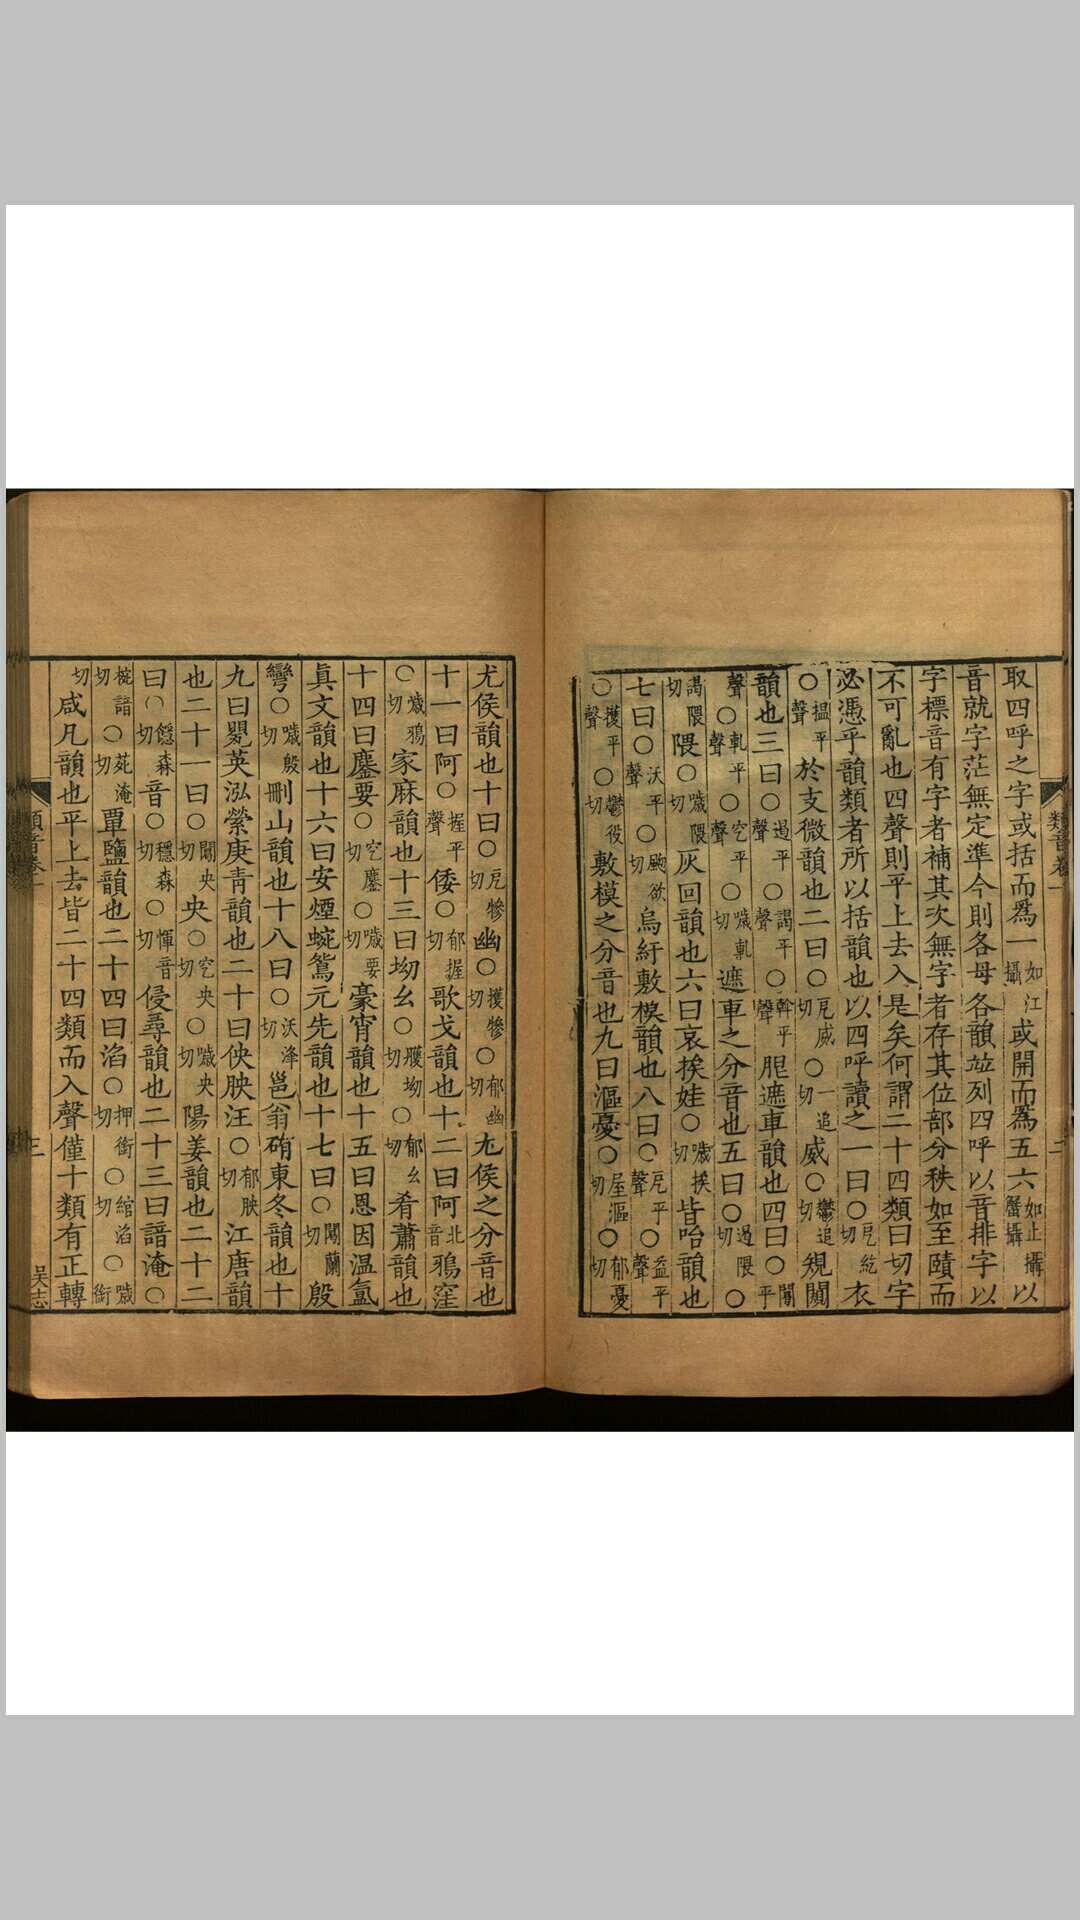 類音卷一
二
取四呼之字或括而爲一如江攝或開而爲五六如止攝蟹攝以
音就字茫無定準今則各母各韻竝列四呼以音排字以
字標音有字者補其次無字者存其位部分秩如至賾而
不可亂也四聲則平上去入是矣何謂二十四類曰切字
必憑乎韻類者所以括韻也以四呼讀之一曰○戹紇切衣
○揾平聲於支微韻也二曰○戹威切○一追切威○鬱追切規闚
韻也三曰○遏平聲○謁平聲○斡平聲遮車韻也四曰○閼平
聲○軋平聲○空平聲○噦軋切遮車之分音也五曰○遏隈切○
謁隈切隈○噦隈切灰回韻也六曰哀挨娃○噦挨切皆咍韻也
七曰○沃平聲○欲切烏紆敷模韻也八曰○戹平聲○益平聲
○擭平聲○鬱役切敷模之分音也九曰漚憂○屋漚切○郁憂切
尤侯韻也十曰○戹切幽○擭切○郁幽切尤侯之分音也
十一曰阿○握平聲倭○郁握切歌戈韻也十二曰阿北音鴉窪
○噦鴉切家麻韻也十三曰坳幺○雘坳切○郁幺切肴蕭韻也
十四曰鏖要○空鏖切○噦要切豪宵韻也十五曰恩因温氲
真文韻也十六曰安煙蜿鴛元先韻也十七曰○閼蘭切殷
彎○噦殷切刪山韻也十八曰○沃洚切邕翁硧東冬韻也十
九曰甖英泓縈庚青韻也二十曰佒胦汪○郁胦切江唐韻
也二十一曰○閼央切央○空央切○噦央切陽姜韻也二十二
曰○森切音○穩森切○惲音切侵尋韻也二十三曰諳淹○
椀諳切○苑淹切覃鹽韻也二十四曰淊○押銜切○綰淊切○噦銜
切咸凡韻也平上去皆二十四類而入聲僅十類有正轉
類音卷一
三
吴志